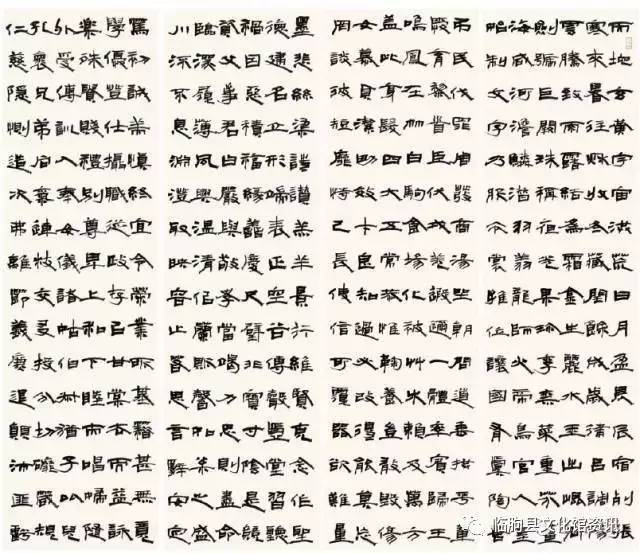 天地玄黃宇宙洪荒日月盈昃辰宿列張
寒來暑往秋收冬藏閏餘成歲律呂調陽
雲騰致雨露結為霜金生麗水玉出崑岡
劍號巨闕珠稱夜光果珍李柰菜重芥薑
海鹹河淡鱗潛羽翔龍師火帝鳥官人皇
始制文字乃服衣裳推位讓國有虞陶唐
弔民伐罪周發商湯坐朝問道垂拱平章
愛育黎首臣伏戎羌遐邇壹體率賓歸王
鳴鳳在竹白駒食場化被草木賴及萬方
蓋此身髮四大五常恭惟鞠養豈敢毀傷
女慕貞潔男效才良知過必改得能莫忘
罔談彼短靡恃己長使信可覆器欲難量
墨悲絲染詩讚羔羊景行維賢克念作聖
德建名立形端表正空谷傳聲虛堂習聽
禍因惡積福緣善慶尺璧非寶寸陰是競
資父事君曰嚴與敬孝當竭力忠則盡命
臨深履薄夙興溫清似蘭斯馨如松之盛
川流不息淵澄取映容止若思言辭安定
篤初誠美慎終宜令榮業所基籍甚無竟
學優登仕攝職從政存以甘棠去而益詠
樂殊貴賤禮別尊卑上和下睦夫唱婦隨
外受傅訓入奉母儀諸姑伯叔猶子比兒
孔懷兄弟同氣連枝交友投分切磨箴規
仁慈隱惻造次弗離節義廉退顛沛匪虧
临朐县文化馆资讯